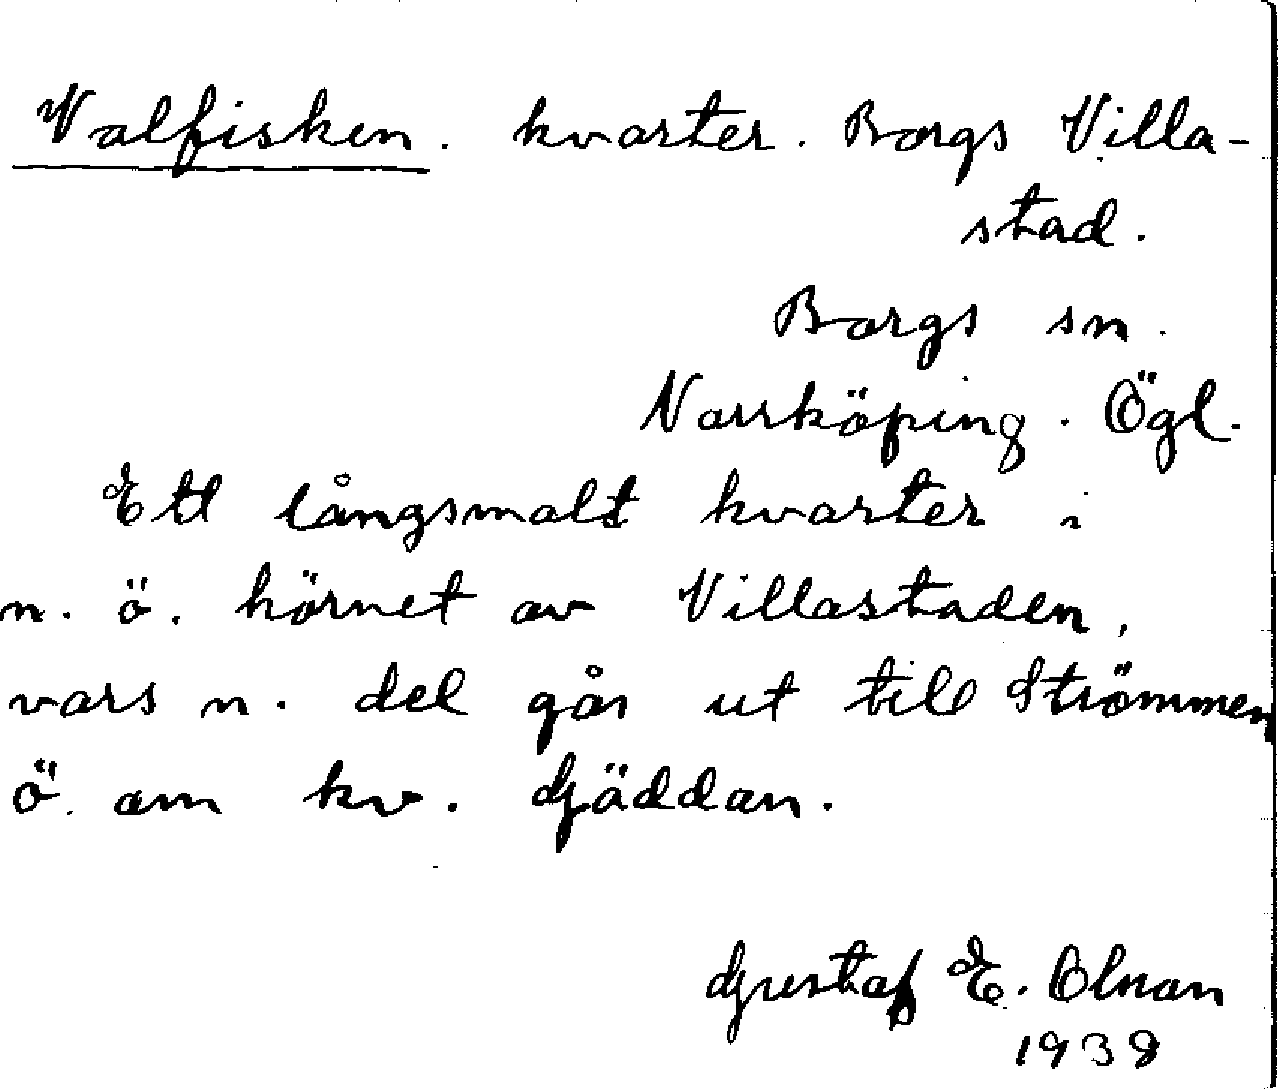 Valfisken. kvarter. Borgs Villa-
stad.
Borgs sn.
Norrköping. Ögl.
Ett långsmalt kvarter i
n. ö. hörnet av Villastaden,
vars n. del går ut till Strömmen
ö. om kv. Gäddan.
Gustaf E. Olson
1938